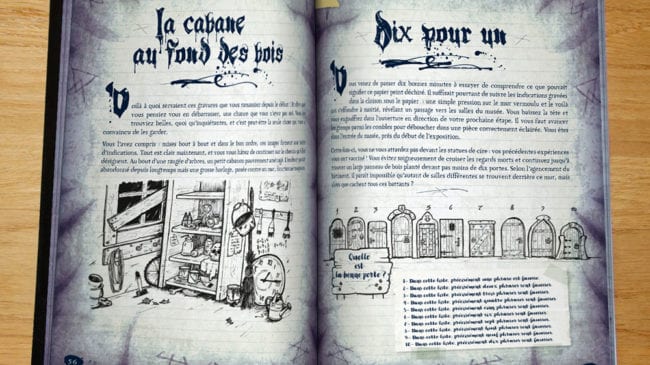 La cabane
au fond des bois
Voilà à quoi servaient ces gravures que vous ramassiez depuis le début. Et dire que
vous pensiez vous en débarrasser, une chance que vous n'ayez pas osé. Vous les
trouviez belles, quoi qu'inquiétantes, et c'est peut-être la seule chose qui vous a
convaincu de les garder.
Vous l'avez compris : mises bout à bout et dans le bon ordre, ces images forment une suite
d'indications. Tout est clair maintenant, et vous vous hâtez de continuer sur le chemin qu'elles
désignent. Au bout d'une rangée d'arbres, un petit cabanon
abandonné depuis longtemps mais une grosse horloge, posée contre un mur, fonctionne toujours
56
Dix pour un
Vous venez de passer dix bonnes minutes à essayer de comprendre ce que pouvait
signifier ce papier peint déchiré. Il suffisait pourtant de suivre les indications gravées
dans la cloison sous le papier : une simple pression sur le mur vermoulu et le voilà
qui s'effondre à moitié, révélant un passage vers les salles du musée. Vous baissez la tête et
vous engouffrez dans l'ouverture en direction de votre prochaine étape. Il vous faut avancer
les groupes parmi les combles pour déboucher dans une pièce correctement éclairée. Vous êtes
dans l'entrée du musée, près du début de l'Exposition.
Cette fois-ci, vous ne vous attendez pas devant les statues de cire : vos précédentes expériences
vous ont vacciné ! Vous évitez soigneusement de croiser les regards morts et continuez jusqu'à
trouver un large panneau de bois plaqué devant pas moins de dix portes. Selon l'agencement du
bâtiment, il paraît impossible qu'autant de salles différentes se trouvent derrière ce mur, mais
alors que cachent tous ces battants ?
1 2 3 4 5 6 7 8 9 10
Quelle
est
la bonne porte ?
1 - Dans cette liste, précisément une phrase est fausse.
2 - Dans cette liste, précisément deux phrases sont fausses.
3 - Dans cette liste, précisément trois phrases sont fausses.
4 - Dans cette liste, précisément quatre phrases sont fausses.
5 - Dans cette liste, précisément cinq phrases sont fausses.
6 - Dans cette liste, précisément six phrases sont fausses.
7 - Dans cette liste, précisément sept phrases sont fausses.
8 - Dans cette liste, précisément huit phrases sont fausses.
9 - Dans cette liste, précisément neuf phrases sont fausses.
10 - Dans cette liste, précisément dix phrases sont fausses.